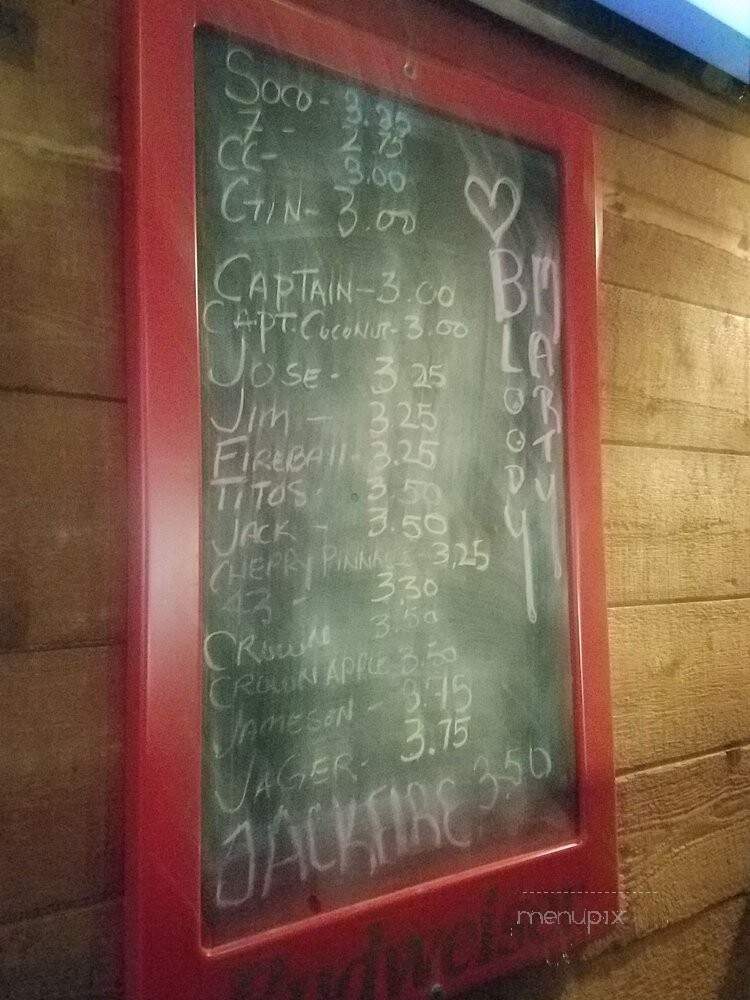 Soco - 3.25
7 - 2.75
CC - 3.00
GIN - 3.00
CAPTAIN - 3.00
CAPT. COCONUT - 3.00
JOSE - 3.25
JIM - 3.25
FIREBALL - 3.25
TITOS - 3.50
JACK - 3.50
CHERRY PINNACLE - 3.25
43 - 3.30
CROWN 3.50
CROWN APPLE 3.50
JAMESON - 3.75
JAGER - 3.75
JACKFIRE 3.50
♡
BLOODY
MARTY
Budweiser
menupix